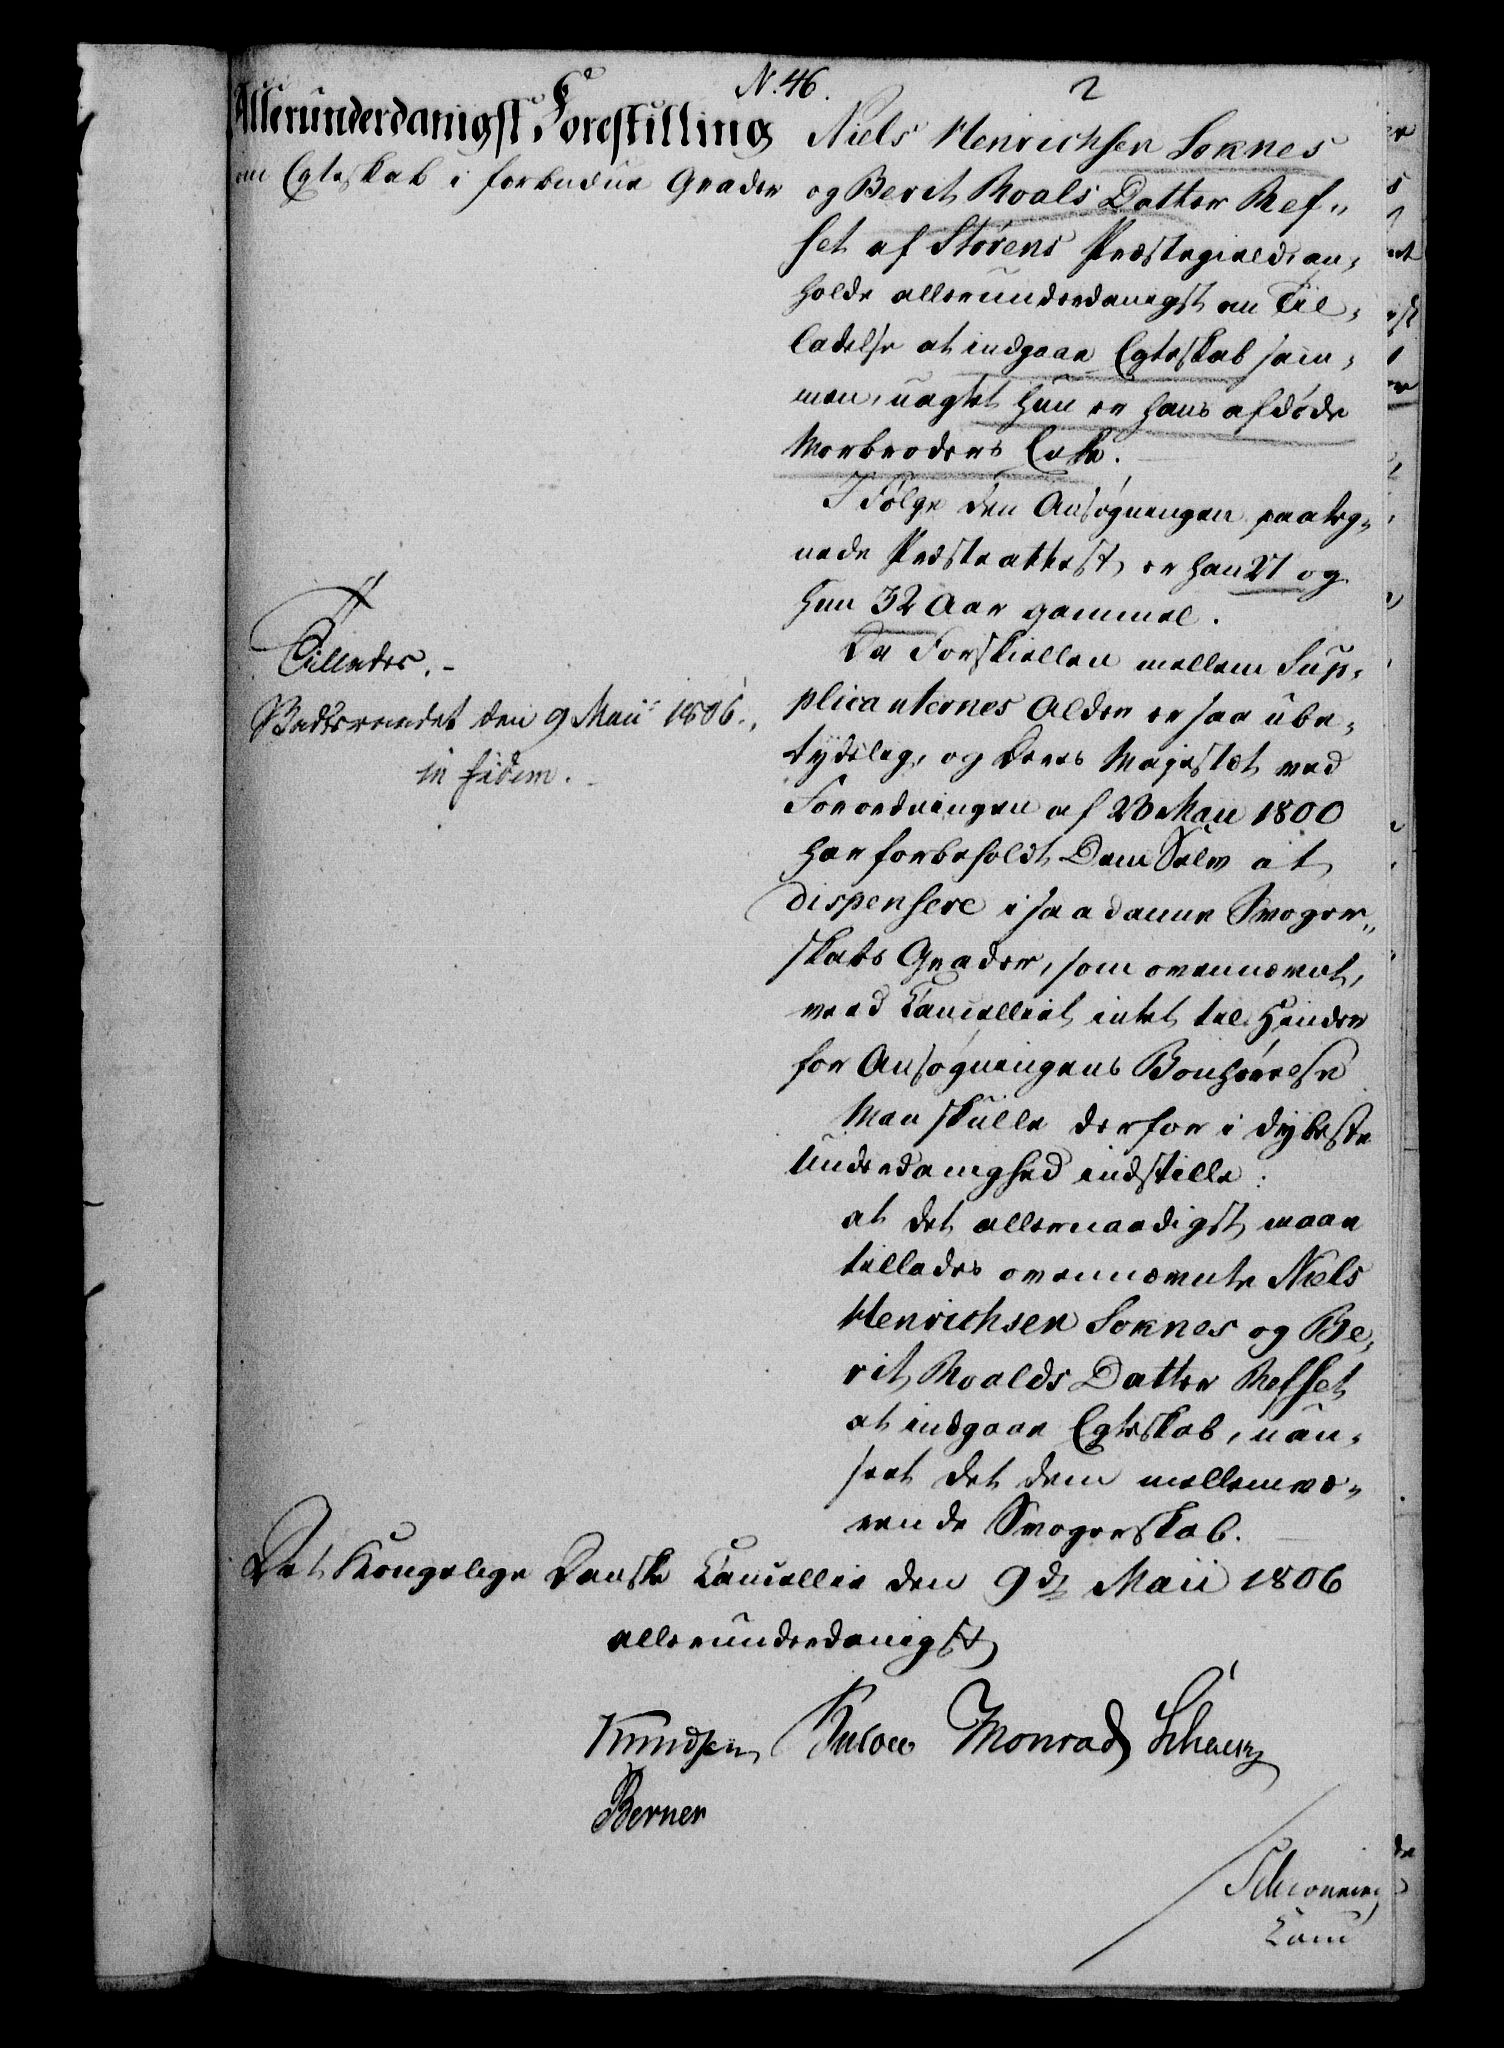 N. 46.
2
Allerunderdanigst Forestilling
om Egteskab i forbudne Grader
Niels Henrichsen Soknes
og Berit Roals Datter Ref„
set af Størens Præstegield, an„
holde allerunderdanigst om Til„
ladelse at indgaae Egteskab sam„
men, uagtet hun er hans afdøde
Morbroders Enke.
I Følge den Ansøgningen paateg„
nede Præsteattest, er han 27 og
hun 32 Aar gammel.
Da Forskiellen mellem Sup„
plicanternes Alder er saa ube„
tydelig, og Deres Majestæt ved
Forordningen af 23 Maii 1800
har forbeholdt Dem Selv at
dispensere i saadanne Svoger„
skabs Grader, som ovennævnt,
veed Cancelliet intet til Hinder
for Ansøgningens Bønhørelse
Man skulle derfor i dybeste
Underdanighed indstille:
at det allernaadigst maae
tillades ovennævnte Niels
Henrichsen Soknes og Be„
rit Roalds Datter Refset
at indgaae Egteskab, uan„
seet det dem mellemvæ„
rende Svogerskab.
Tillades.
den 9 Maii 1806.
in fidem.
Det Kongelige Danske Cancellie den 9de Maii 1806
allerunderdanigst
Knudsen Bülow Monrad
Berner
Schønning